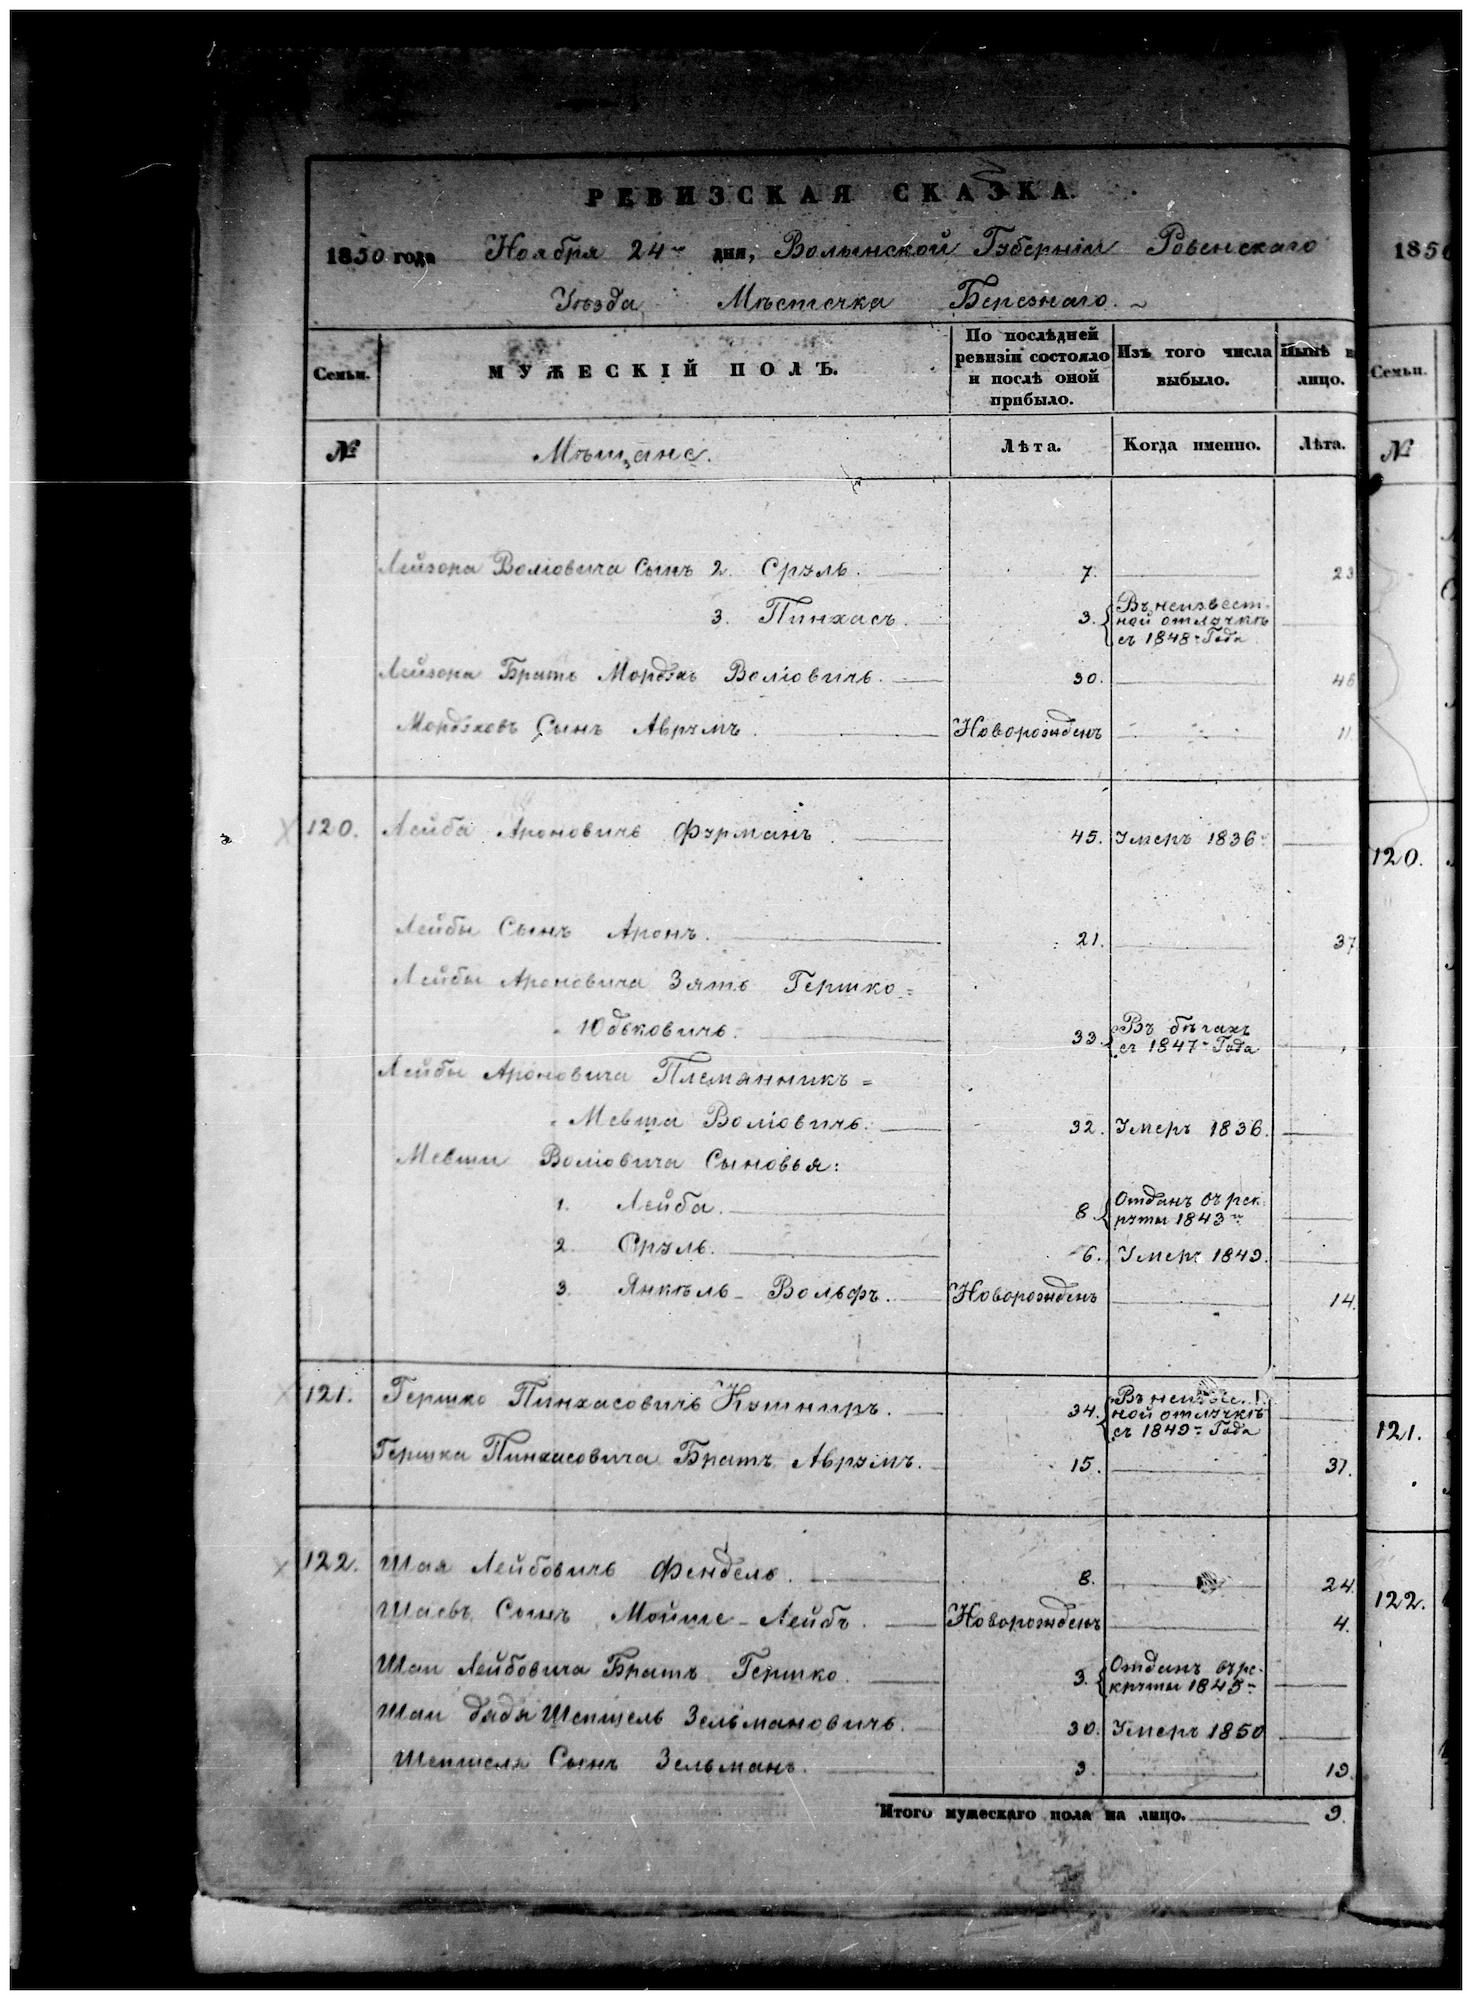 РЕВИЗСКАЯ СКАЗКА.
1850 года Ноября 24го дня, Волынской Губерніи Ровенскаго
Уѣзда Мѣстечка Березнаго.
Семьи. МУЖЕСКІЙ ПОЛЪ. По послѣдней ревизіи состояло и послѣ оной прибыло. Изъ того числа выбыло. Нынѣ н лицо.
№ Мѣщане. Лѣта. Когда именно. Лѣта.
Лейзора Волiовича Сынъ 2. Сруль. 7. 23
3. Пинхасъ. 3. Въ неизвест-
ной отлучкѣ
съ 1848 Года
Лейзора Братъ Мордхъ Волiовичъ. 30. 46
Мордховъ Сынъ Аврумъ. Новорожденъ 11.
120. Лейба Ароновичъ Фурманъ 45. Умеръ 1836
Лейбы Сынъ Аронъ. 21. 37
Лейбы Ароновича Зять Гершко=
Юдьковичъ. 33. Въ бѣгахъ
съ 1847 Года
Лейбы Ароновича Племянникъ=
Мевша Волiовичъ. 32. Умеръ 1836.
Мевши Волiовича Сыновья:
1. Лейба. 8. Отданъ въ рек-
руты 1843
2. Сруль. 6. Умеръ 1849.
3. Янкѣль-Вольфъ. Новорожденъ 14.
121. Гершко Пинхасовичъ Кушниръ. 34. Въ неизвест-
ной отлучкѣ
съ 1849 Года
Гершка Пинхасовича Братъ Аврумъ. 15. 31.
122. Шая Лейбовичъ Фендель. 8. 24.
Шаевъ Сынъ Мойше-Лейбъ. Новорожденъ 4.
Шаи Лейбовича Братъ Гершко. 3. Отданъ въ ре-
круты 1845
Шаи дядя Шепшель Зельмановичъ. 30. Умеръ 1850
Шепшеля Сынъ Зельманъ. 3. 19.
Итого мужескаго пола на лицо. 9.
1850
Семьи.
№
120.
121.
122.